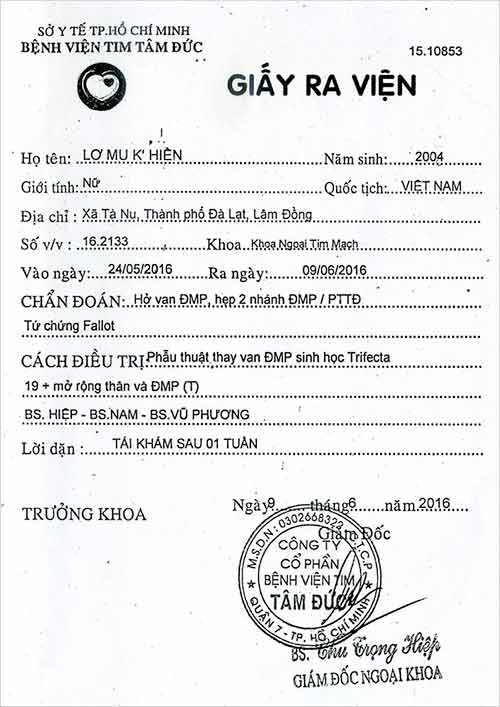 SỞ Y TẾ TP.HỒ CHÍ MINH
BỆNH VIỆN TIM TÂM ĐỨC
15.10853
GIẤY RA VIỆN
Họ tên: LƠ MU K' HIÊN Năm sinh: 2004
Giới tính: Nữ Quốc tịch: VIỆT NAM
Địa chỉ : Xã Tà Nu, Thành phố Đà Lạt, Lâm Đồng
Số v/v : 16.2133 Khoa Khoa Ngoại Tim Mạch
Vào ngày: 24/05/2016 Ra ngày: 09/06/2016
CHẨN ĐOÁN: Hở van ĐMP, hẹp 2 nhánh ĐMP / PTTĐ
Tứ chứng Fallot
CÁCH ĐIỀU TRỊ: Phẫu thuật thay van ĐMP sinh học Trifecta
19 + mở rộng thân và ĐMP (T)
BS. HIỆP - BS.NAM - BS.VŨ PHƯƠNG
Lời dặn : TÁI KHÁM SAU 01 TUẦN
Ngày 9 tháng 6 năm 2016
TRƯỞNG KHOA
Giám Đốc
M.S.D.N: 0302668322 C.T.C.P
CÔNG TY
CỔ PHẦN
BỆNH VIỆN TIM
TÂM ĐỨC
QUẬN 7 - TP. HỒ CHÍ MINH
BS. Chu Trọng Hiệp
GIÁM ĐỐC NGOẠI KHOA